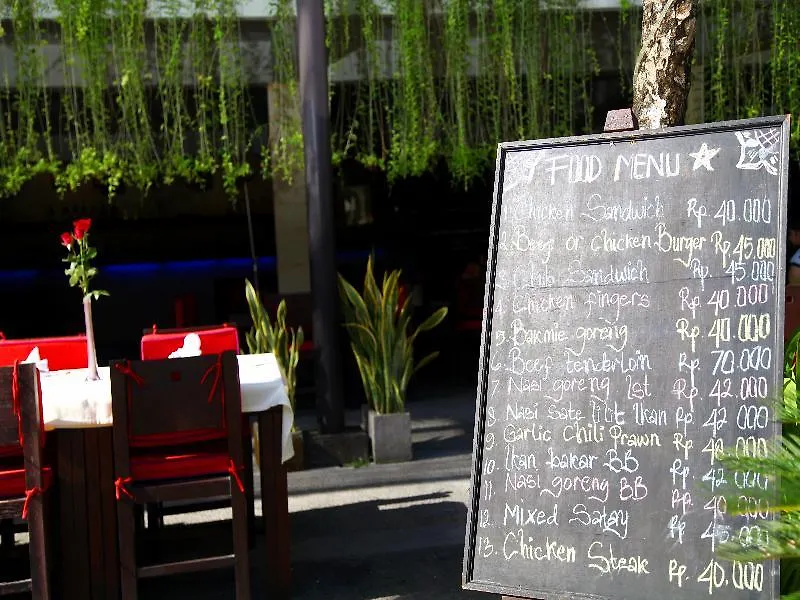 FOOD MENU
Chicken Sandwich Rp. 40.000
2. Beef or Chicken Burger Rp. 45.000
Club Sandwich Rp. 45.000
Chicken fingers Rp. 40.000
5. Bakmie goreng Rp. 40.000
6. Beef Tenderloin Rp. 70.000
7. Nasi goreng Ist Rp. 42.000
8. Nasi Sate lilit Ikan Rp. 42.000
9. Garlic Chili Prawn Rp. 48.000
10. Ikan bakar BB Rp. 42.000
11. Nasi goreng BB Rp. 40.000
12. Mixed Satay Rp. 45.000
13. Chicken Steak Rp. 40.000